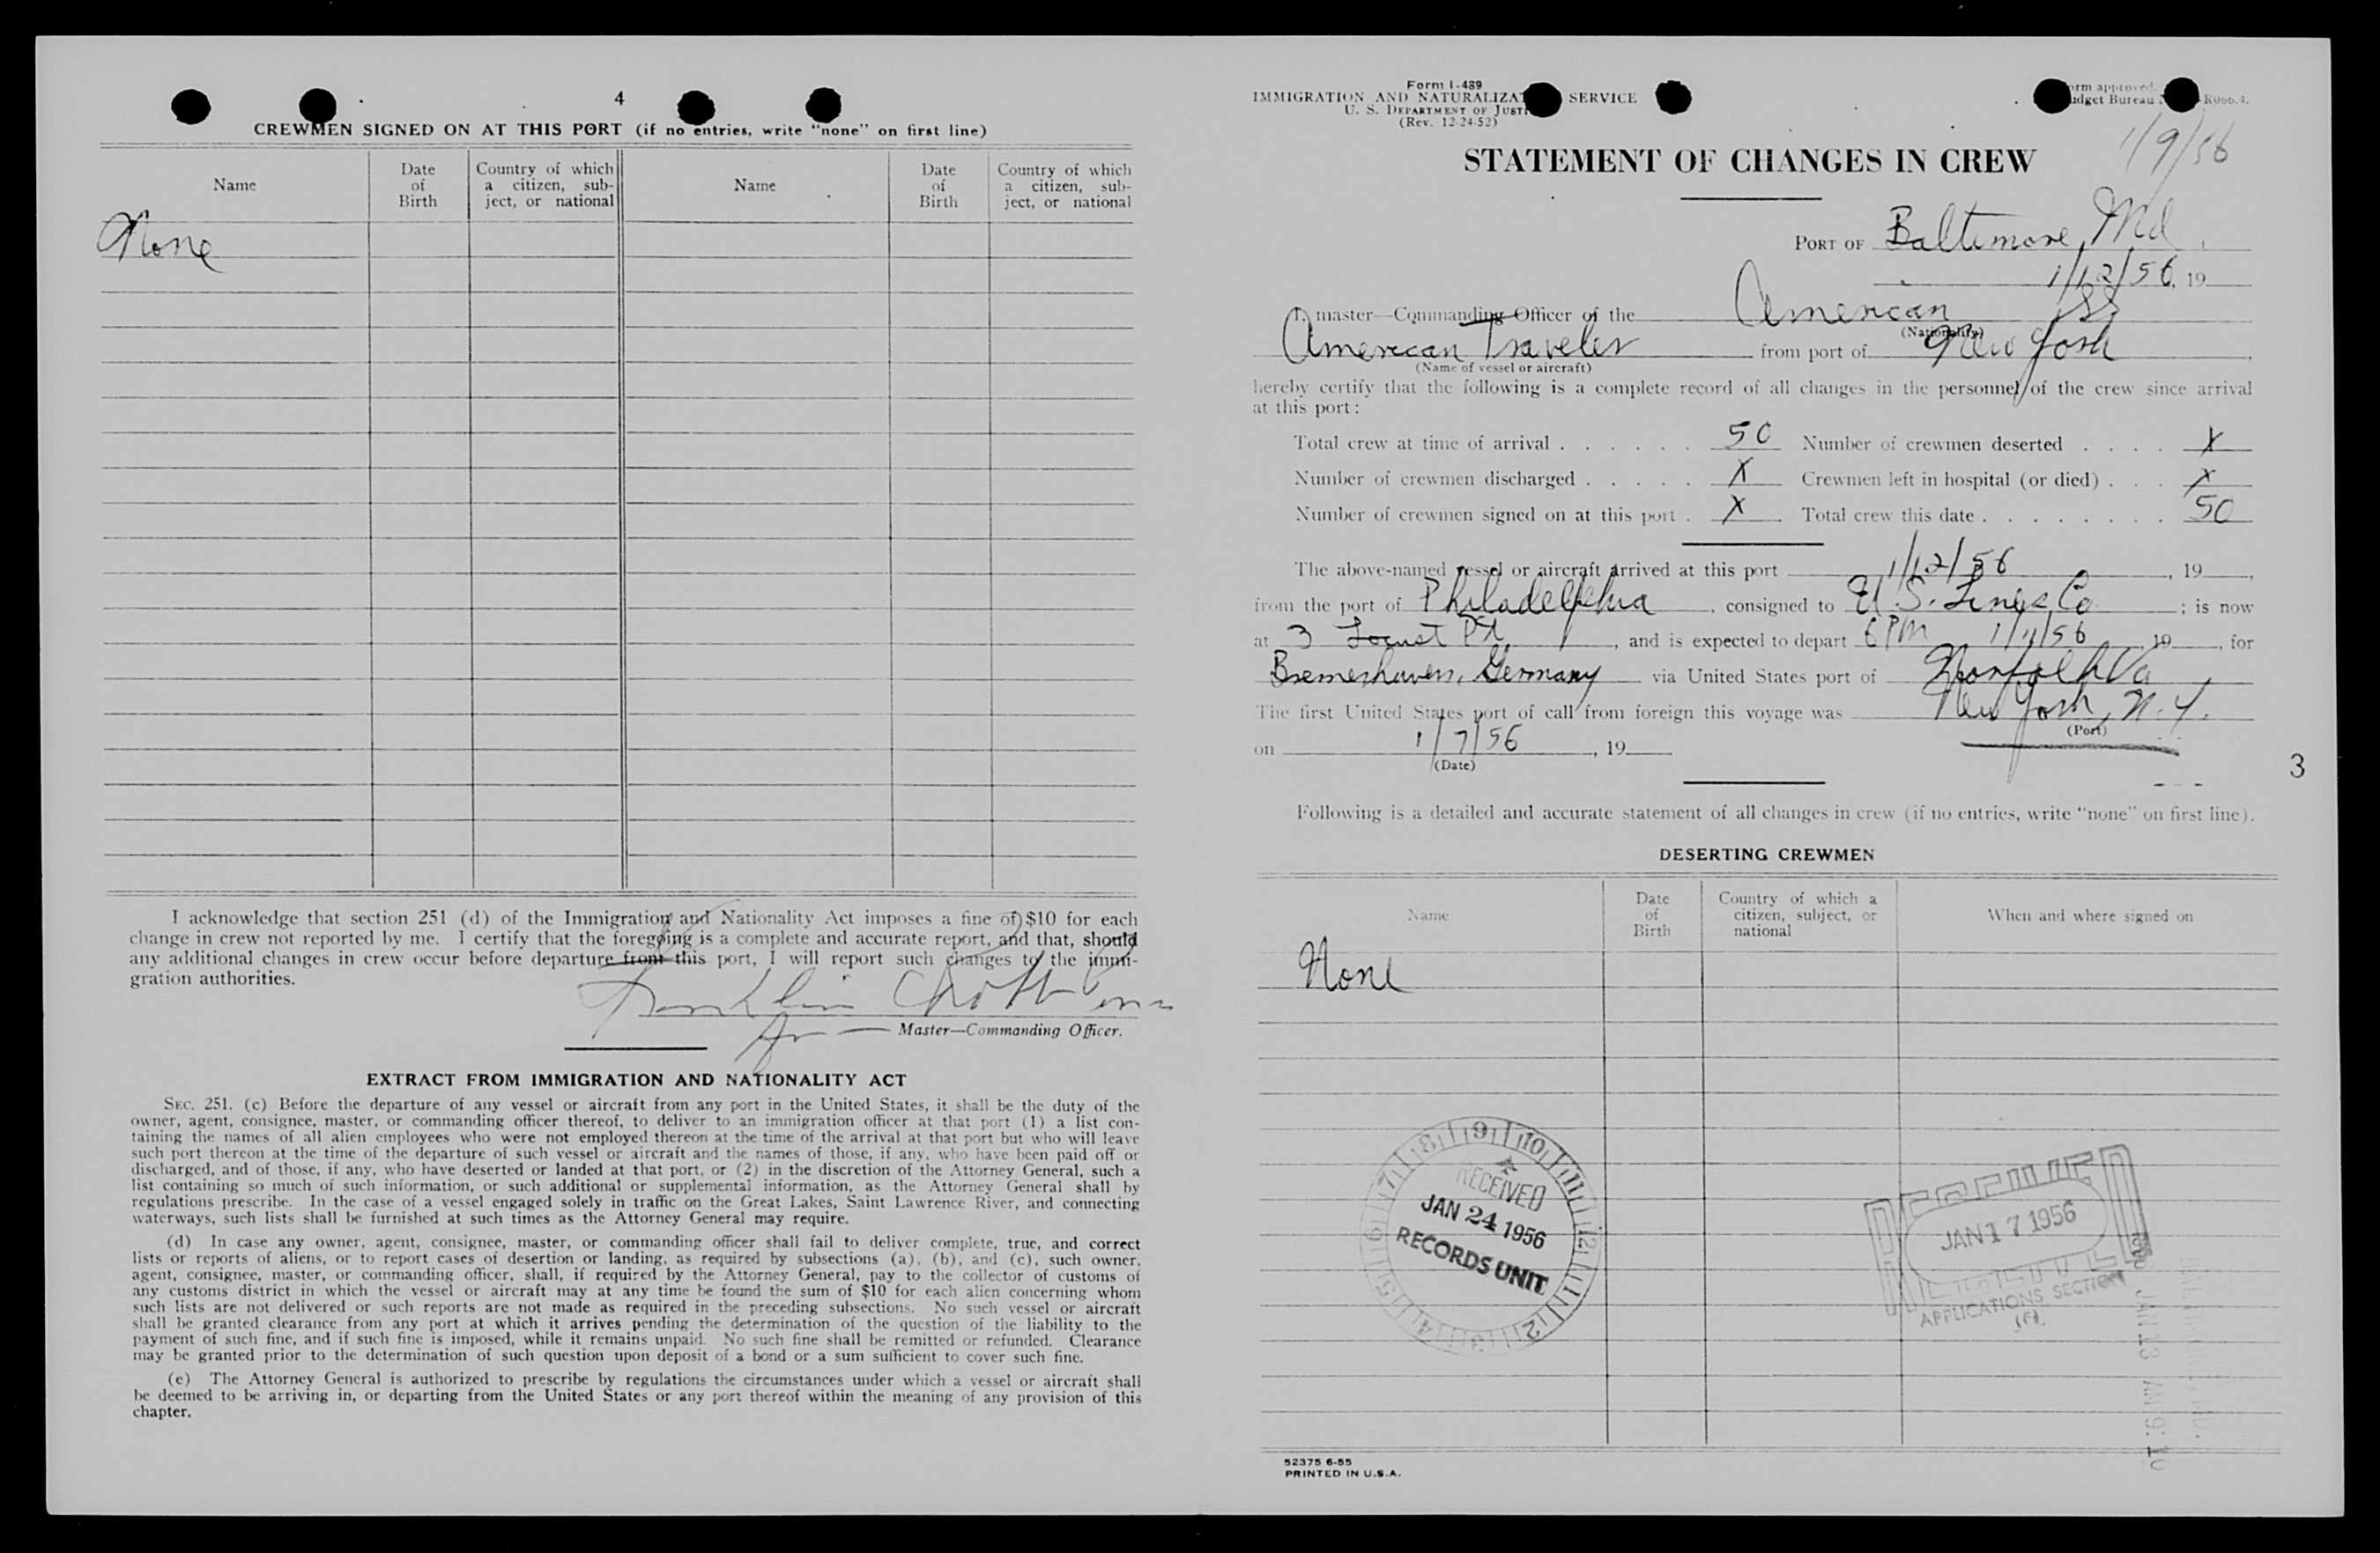 4
CREWMEN SIGNED ON AT THIS PORT (if no entries, write "none" on first line)
Name
Date of Birth
Country of which a citizen, subject, or national
Name
Date of Birth
Country of which a citizen, subject, or national
None
I acknowledge that section 251 (d) of the Immigration and Nationality Act imposes a fine of $10 for each
change in crew not reported by me. I certify that the foregoing is a complete and accurate report, and that, should
any additional changes in crew occur before departure from this port, I will report such changes to the immi-
gration authorities.
Franklin
Master—Commanding Officer.
EXTRACT FROM IMMIGRATION AND NATIONALITY ACT
SEC. 251. (c) Before the departure of any vessel or aircraft from any port in the United States, it shall be the duty of the
owner, agent, consignee, master, or commanding officer thereof, to deliver to an immigration officer at that port (1) a list con-
taining the names of all alien employees who were not employed thereon at the time of the arrival at that port but who will leave
such port thereon at the time of the departure of such vessel or aircraft and the names of those, if any, who have been paid off or
discharged, and of those, if any, who have deserted or landed at that port, or (2) in the discretion of the Attorney General, such a
list containing so much of such information, or such additional or supplemental information, as the Attorney General shall by
regulations prescribe. In the case of a vessel engaged solely in traffic on the Great Lakes, Saint Lawrence River, and connecting
waterways, such lists shall be furnished at such times as the Attorney General may require.
(d) In case any owner, agent, consignee, master, or commanding officer shall fail to deliver complete, true, and correct
lists or reports of aliens, or to report cases of desertion or landing, as required by subsections (a), (b), and (c), such owner,
agent, consignee, master, or commanding officer, shall, if required by the Attorney General, pay to the collector of customs of
any customs district in which the vessel or aircraft may at any time be found the sum of $10 for each alien concerning whom
such lists are not delivered or such reports are not made as required in the preceding subsections. No such vessel or aircraft
shall be granted clearance from any port at which it arrives pending the determination of the question of the liability to the
payment of such fine, and if such fine is imposed, while it remains unpaid. No such fine shall be remitted or refunded. Clearance
may be granted prior to the determination of such question upon deposit of a bond or a sum sufficient to cover such fine.
(e) The Attorney General is authorized to prescribe by regulations the circumstances under which a vessel or aircraft shall
be deemed to be arriving in, or departing from the United States or any port thereof within the meaning of any provision of this
chapter.
Form I-489
IMMIGRATION AND NATURALIZAT SERVICE
U. S. DEPARTMENT OF JUSTI
(Rev. 12-24-52)
rm approved.
udget Bureau R066.4.
1/9/56
STATEMENT OF CHANGES IN CREW
PORT OF Baltimore, Md
1/12/56, 19
I, master—Commanding Officer of the American SS
(Nationality)
American Traveler from port of New York
(Name of vessel or aircraft)
hereby certify that the following is a complete record of all changes in the personnel of the crew since arrival
at this port:
Total crew at time of arrival . . . . . . 50 Number of crewmen deserted . . . . X
Number of crewmen discharged . . . . . X Crewmen left in hospital (or died) . . . X
Number of crewmen signed on at this port . X Total crew this date . . . . . . . . 50
The above-named vessel or aircraft arrived at this port 1/12/56, 19
from the port of Philadelphia, consigned to U.S. Lines Co; is now
at 3 Locust Pt, and is expected to depart 6 PM 1/11/56 19, for
Bremerhaven, Germany via United States port of Norfolk Va
The first United States port of call from foreign this voyage was New York, N.Y.
(Port)
on 1/7/56, 19
(Date)
3
Following is a detailed and accurate statement of all changes in crew (if no entries, write "none" on first line).
DESERTING CREWMEN
Name
Date of Birth
Country of which a citizen, subject, or national
When and where signed on
None
RECEIVED
JAN 24 1956
RECORDS UNIT
RECEIVED
JAN 17 1956
APPLICATIONS SECTION
JAN 13 AM 9:10
52375 6-55
PRINTED IN U.S.A.